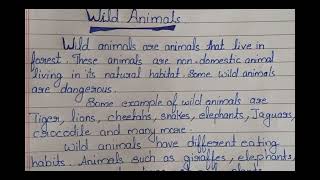 Wild Animals
Wild animals are animals that live in
forest. These animals are non-domestic animal
living in its natural habitat. Some wild animals
are dangerous.
Some example of wild animals are
Tiger, lions, cheetahs, snakes, elephants, Jaguars,
crocodile and many more.
Wild animals have different eating
habits. Animals such as giraffes, elephants,